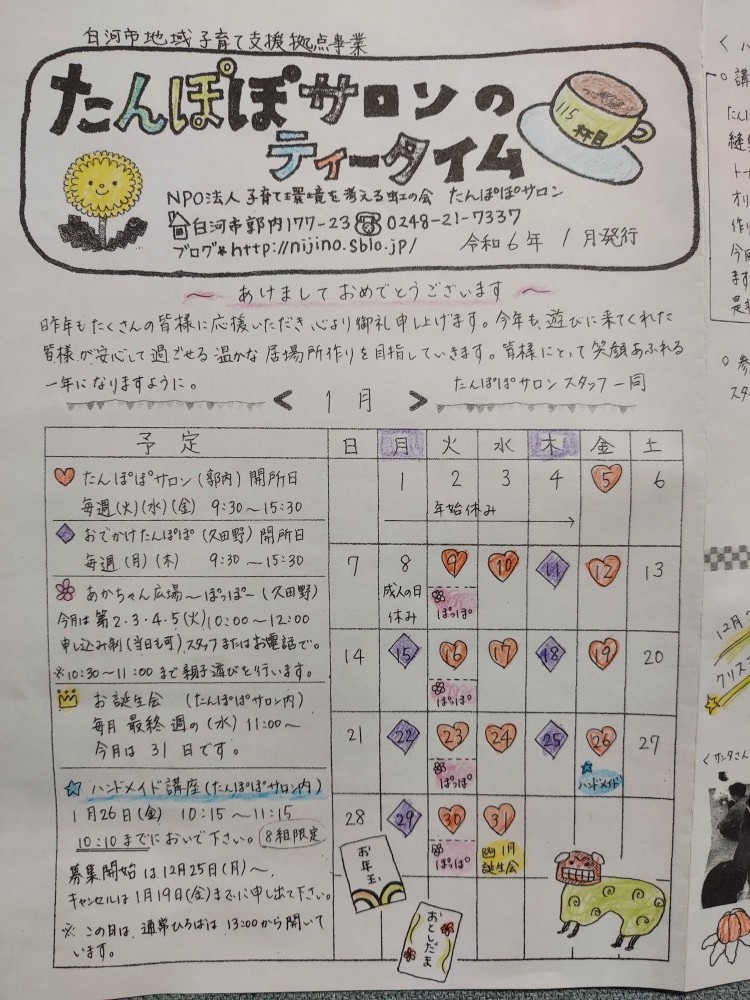 白河市地域子育て支援拠点事業
たんぽぽサロンの
ティータイム
115
杯目
NPO法人 子育て環境を考える虹の会 たんぽぽサロン
白河市郭内177-23 ☎0248-21-7337
ブログ*http://nijino.sblo.jp/ 令和6年 1月発行
〜 あけましておめでとうございます 〜
昨年もたくさんの皆様に応援いただき心より御礼申し上げます。今年も、遊びに来てくれた
皆様が安心して過ごせる温かな居場所作りを目指していきます。皆様にとって笑顔あふれる
一年になりますように。 たんぽぽサロンスタッフ一同
< 1月 >
予定
♡ たんぽぽサロン(郭内)開所日
毎週(火)(水)(金) 9:30〜15:30
◆ おでかけたんぽぽ(久田野)開所日
毎週(月)(木) 9:30〜15:30
あかちゃん広場〜ぽっぽ〜(久田野)
今月は第2.3.4.5(火)10:00〜12:00
申し込み制(当日も可)スタッフまたはお電話で。
※10:30〜11:00まで親子遊びを行います。
お誕生会 (たんぽぽサロン内)
毎月最終週の(水)11:00〜
今月は31日です。
☆ ハンドメイド講座(たんぽぽサロン内)
1月26日(金) 10:15〜11:15
10:10までにおいで下さい。 8組限定
募集開始は12月25日(月)〜
キャンセルは1月19日(金)までに申し出て下さい。
※ この日は、通常ひろばは13:00から開いて
います。
日 月 火 水 木 金 土
1 2 3 4 5 6
年始休み
7 8 9 10 11 12 13
成人の日
休み
ぽっぽ
14 15 16 17 18 19 20
ぽっぽ
21 22 23 24 25 26 27
ぽっぽ
ハンドメイド
28 29 30 31
ぽっぽ
1月
誕生会
お年玉
おとしだま
○ 講
たんぽ
今回
ます
○ 参
スタ
12月
クリス
<サンタさん